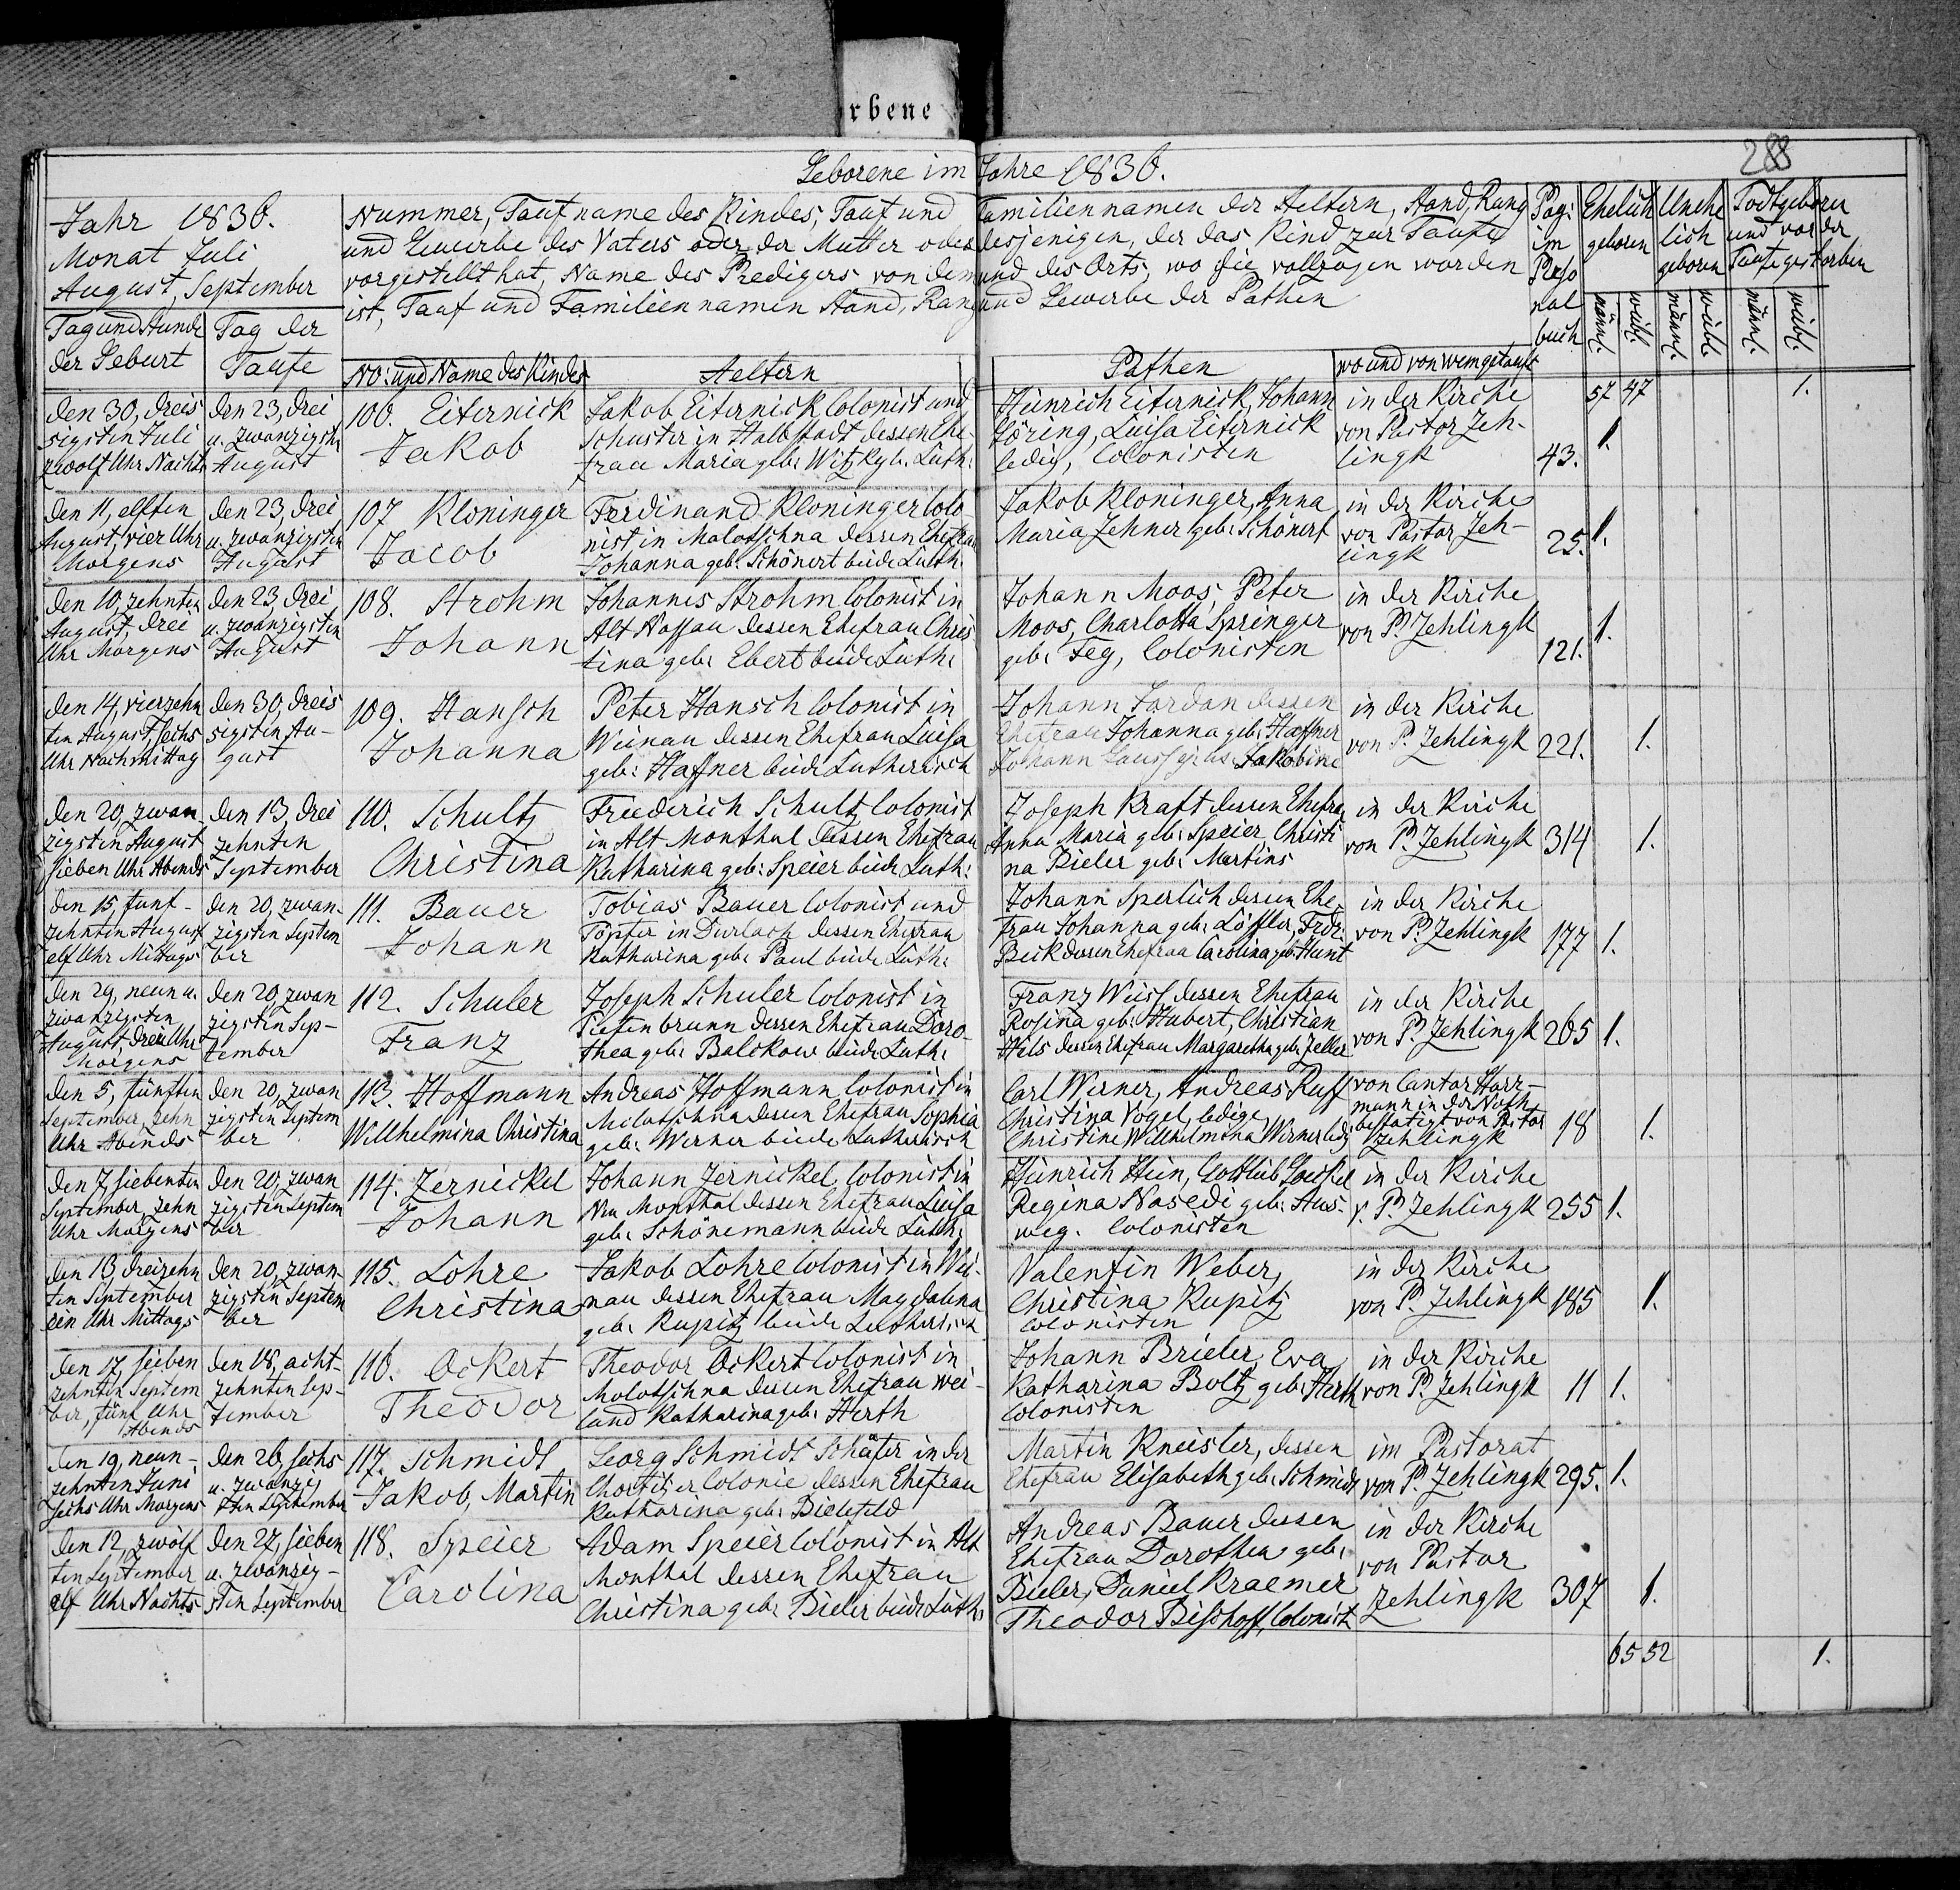 rbene
288
Geborene im Jahre 1836.
Jahr 1836.
Monat Juli
August, September
Tag und Stunde
der Geburt
Tag der
Taufe
Nummer, Taufname des Kindes, Tauf und Familiennamen der Aeltern, Stand, Rang
und Gewerbe des Vaters oder der Mutter oder desjenigen, der das Kind zur Taufe
vorgestellt hat, Name des Predigers von dem und des Orts, wo sie vollzogen worden
ist, Tauf und Familiennamen Stand, Rang und Gewerbe der Pathen
No: und Name des Kindes
Aeltern
Pathen
wo und von wem getauft
Pag:
im
Perso
nal
buch
Ehelich
geboren
männl.
weibl.
Unehe
lich
geboren
männl.
weibl.
Todtgeboren
und vor der
Taufe gestorben
männl.
weibl.
57 47 1.
den 30, dreis
sigsten Juli
zwölf Uhr Nachts
den 23, drei
u. zwanzigsten
August
106. Eiternick
Jakob
Jakob Eiternick Colonist und
Schuster in Halbstadt dessen Ehe-
frau Maria geb: Witzky b. Luth:
Heinrich Eiternick, Johann
Göring, Luisa Eiternick
ledig, Colonisten
in der Kirche
von Pastor Zeh-
lingk
43. 1.
den 11, elften
August, vier Uhr
Morgens
den 23, drei
u. zwanzigsten
August
107 Kloninger
Jacob
Ferdinand Kloninger Colo-
nist in Molotschna dessen Ehefrau
Johanna geb: Schönert beide Luth:
Jakob Kloninger, Anna
Maria Zehner geb: Schönert
in der Kirche
von Pastor Zeh-
lingk
25. 1.
den 10, zehnten
August, drei
Uhr Morgens
den 23, drei
u. zwanzigsten
August
108. Strohm
Johann
Johannes Strohm Colonist in
Alt Nassau dessen Ehefrau Chris
tina geb: Ebert beide Luth:
Johann Moos, Peter
Moos, Charlotta Springer
geb: Feg, Colonisten
in der Kirche
von P. Zehlingk
121. 1.
den 14, vierzehn
ten August, sechs
Uhr Nachmittag
den 30, dreis
sigsten Au-
gust
109. Hansch
Johanna
Peter Hansch Colonist in
Weinau dessen Ehefrau Luisa
geb: Hafner beide Lutherisch
Johann Jordan dessen
Ehefrau Johanna geb: Haffner
Johann Jakobine
in der Kirche
von P. Zehlingk
221. 1.
den 20, zwan
zigsten August
sieben Uhr Abends
den 13, drei
zehnten
September
110. Schultz
Christina
Friederich Schultz Colonist
in Alt Monthal dessen Ehefrau
Katharina geb: Speier beide Luth:
Joseph Kraft dessen Ehefrau
Anna Maria geb: Speier Christi
na Bieler geb: Martins
in der Kirche
von P. Zehlingk
314 1.
den 15, fünf-
zehnten August
elf Uhr Mittags
den 20, zwan-
zigsten Septem
ber
111. Bauer
Johann
Tobias Bauer Colonist und
Töpfer in Durlach dessen Ehefrau
Katharina geb: Paul beide Luth:
Johann Sperlich dessen Ehe-
frau Johanna geb: Löffler, Frdr:
Beik dessen Ehefrau Carolina geb: Hunt
in der Kirche
von P. Zehlingk
177 1.
den 29, neun u.
zwanzigsten
August drei Uhr
Morgens
den 20, zwan
zigsten Sep-
tember
112. Schuler
Franz
Joseph Schuler Colonist in
Tiefenbrunn dessen Ehefrau Doro-
thea geb: Balckow beide Luth:
Franz Weiss dessen Ehefrau
Rosina geb: Hubert, Christian
Hils dessen Ehefrau Margaretha geb: Zeller
in der Kirche
von P. Zehlingk
265 1.
den 5, fünften
September, zehn
Uhr Abends
den 20, zwan
zigsten Septem
ber
113. Hoffmann
Willhelmina Christina
Andreas Hoffmann Colonist in
Molotschna dessen Ehefrau Sophia
geb: Werner beide Lutherisch
Carl Werner, Andreas Ruff
Christina Vogel, ledige,
Christine Willhelmina Werner ledig
von Cantor Harr-
mann in der Noth
bestätigt von Pastor
Zehlingk
18 1.
den 7, siebenten
September, zehn
Uhr Morgens
den 20, zwan
zigsten Septem
ber
114. Zernickel
Johann
Johann Zernickel Colonist in
Neu Monthal dessen Ehefrau Luisa
geb: Schönemann beide Luth:
Heinrich Hein, Gottlieb
Regina Nasedi geb: Aus-
weg. Colonisten
in der Kirche
v. P. Zehlingk
255 1.
den 13, dreizehn
ten September
ein Uhr Mittags
den 20, zwan-
zigsten Septem
ber
115. Lohre
Christina
Jakob Lohre Colonist in Wei-
nau dessen Ehefrau Magdalena
geb: Kupitz beide Lutherisch
Valentin Weber,
Christina Kupitz
Colonisten
in der Kirche
von P. Zehlingk
185 1.
den 17, sieben
zehnten Septem
ber, fünf Uhr
Abends
den 18, acht-
zehnten Sep-
tember
116. Ockert
Theodor
Theodor Ockert Colonist in
Molotschna dessen Ehefrau wei-
land Katharina geb: Herth
Johann Brieler, Eva
Katharina Boltz geb: Herth
Colonisten
in der Kirche
von P. Zehlingk
11 1.
den 19, neun-
zehnten Juni
sechs Uhr Morgens
den 26, sechs
u. zwanzig
sten September
117. Schmidt
Jakob, Martin
Georg Schmidt Schäfer in der
Chortitzer Colonie dessen Ehefrau
Katharina geb: Bielefeld
Martin Kneisler, dessen
Ehefrau Elisabeth geb: Schmidt
im Pastorat
von P. Zehlingk
295. 1.
den 12, zwölf
ten September
elf Uhr Nachts
den 27, sieben
u. zwanzig-
sten September
118. Speier
Carolina
Adam Speier Colonist in Alt
Monthal dessen Ehefrau
Christina geb: Bieler beide Luth:
Andreas Bauer dessen
Ehefrau Dorothea geb:
Bieler, Daniel Kraemer
Theodor Bischoff, Colonist
in der Kirche
von Pastor
Zehlingk
307 1.
65 52 1.